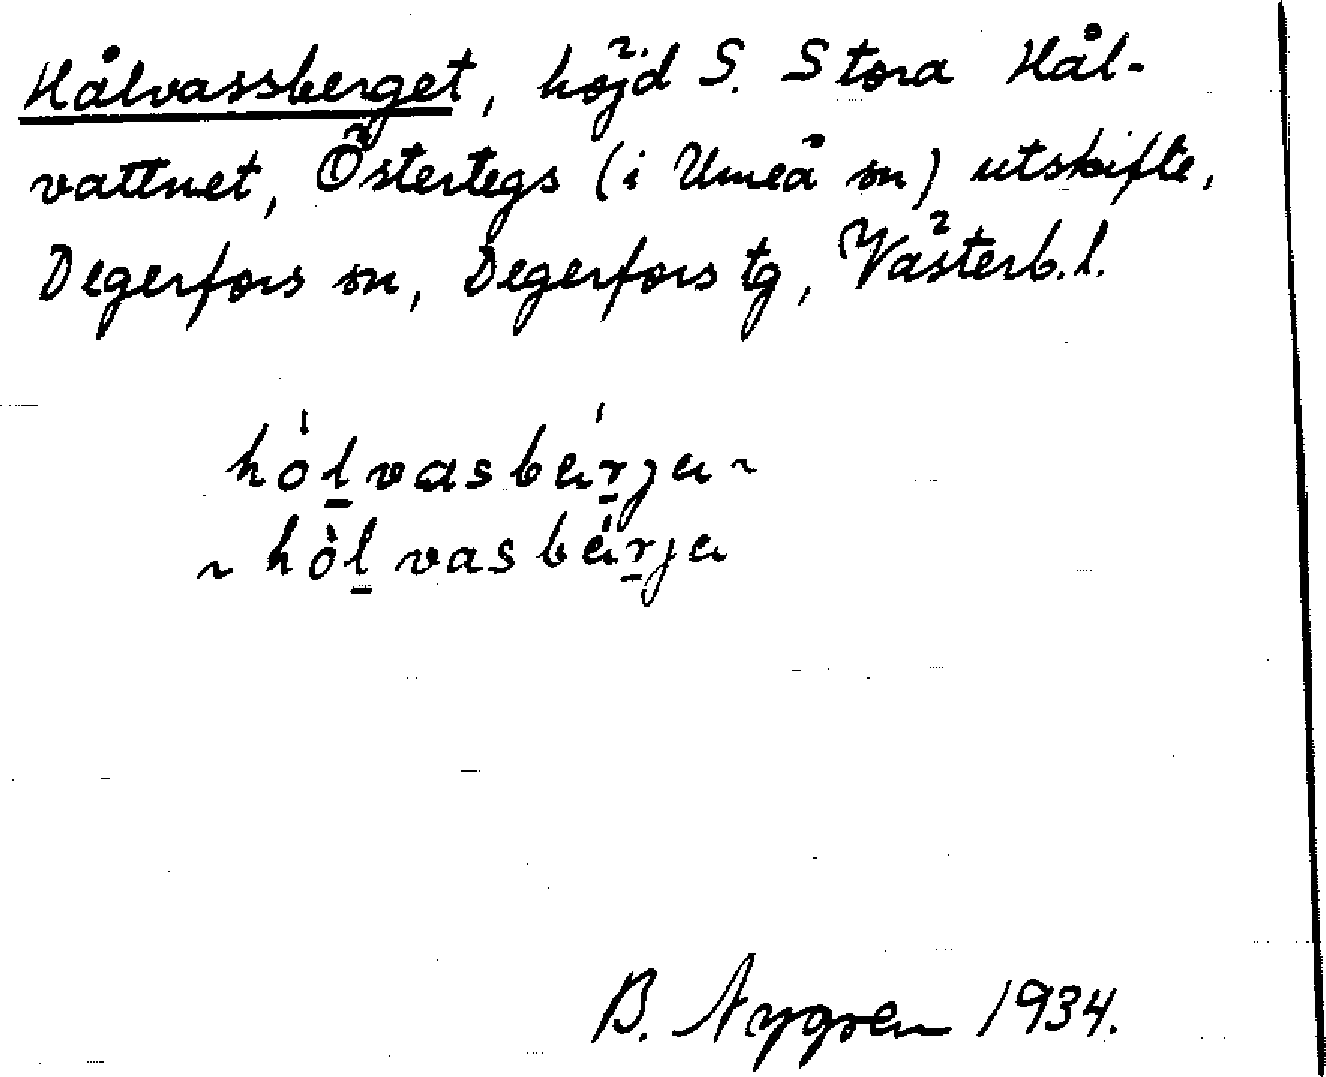 Hålvassberget, höjd S. Stora Hål-
vattnet, Östertegs (i Umeå sn) utskifte,
Degerfors sn, Degerfors tg, Västerb. l.
hó̀l̠vasbár̠ja ~
~ hòl̠vasbár̠ja
B. Nygren 1934.